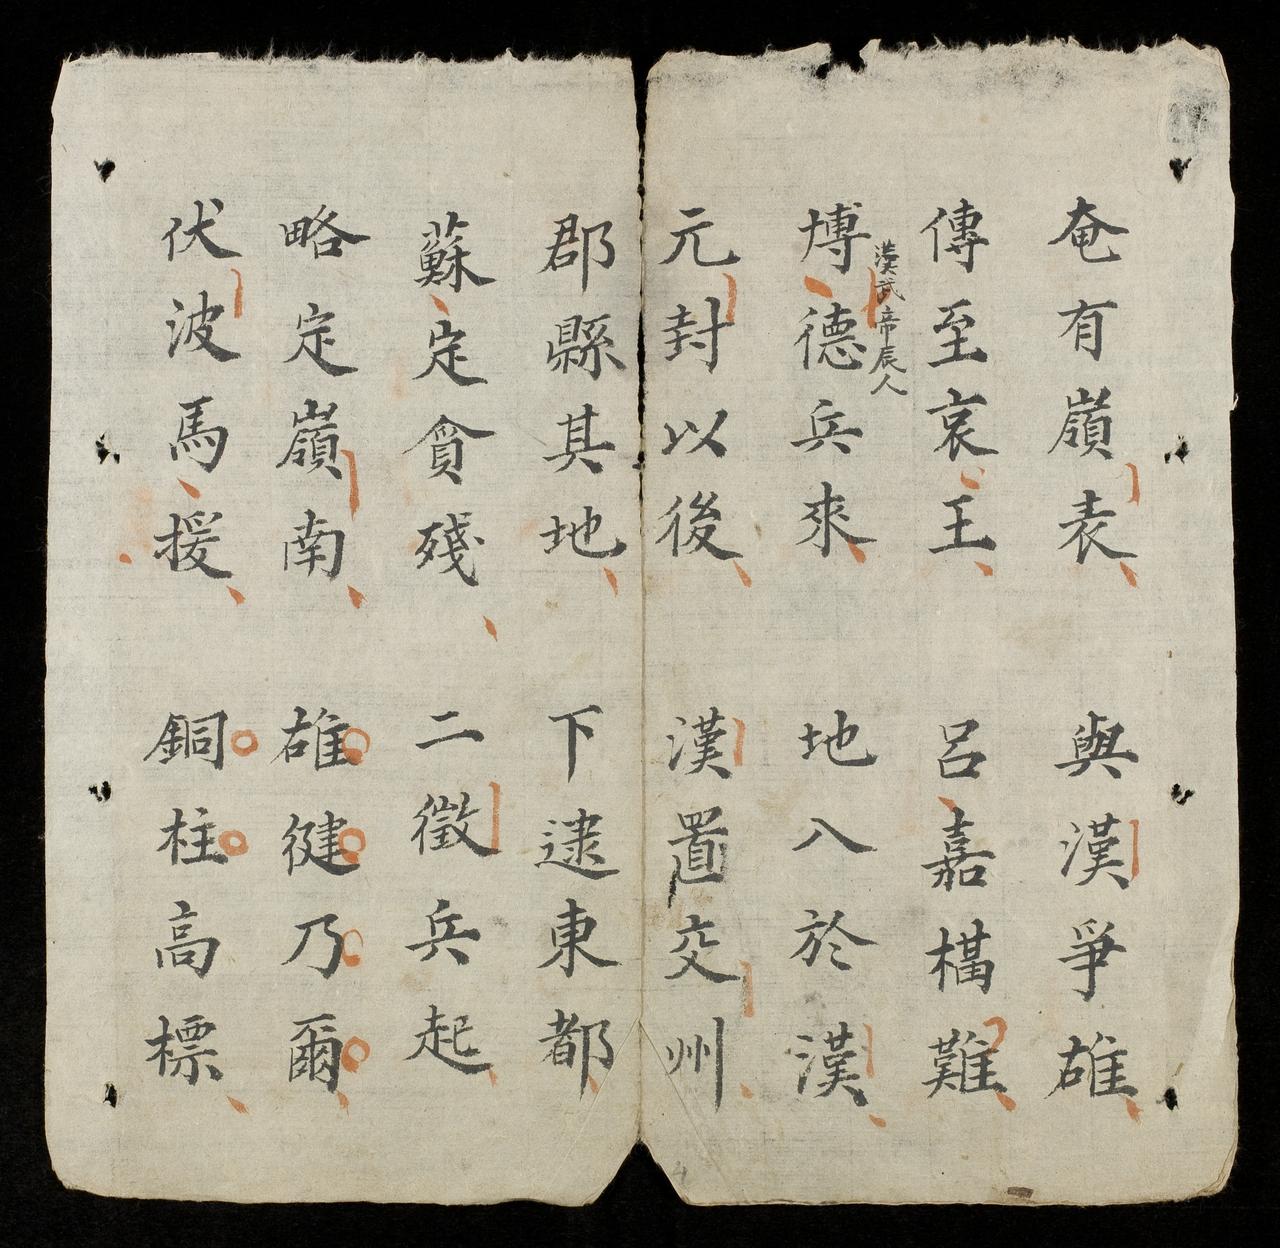 奄有嶺表 與漢爭雄
傳至哀王 呂嘉構難
漢武帝辰人
博德兵來 地入於漢
元封以後 漢置交州
郡縣其地 下逮東都
蘇定貪殘 二徵兵起
略定嶺南 雄健乃爾
伏波馬援 銅柱高標